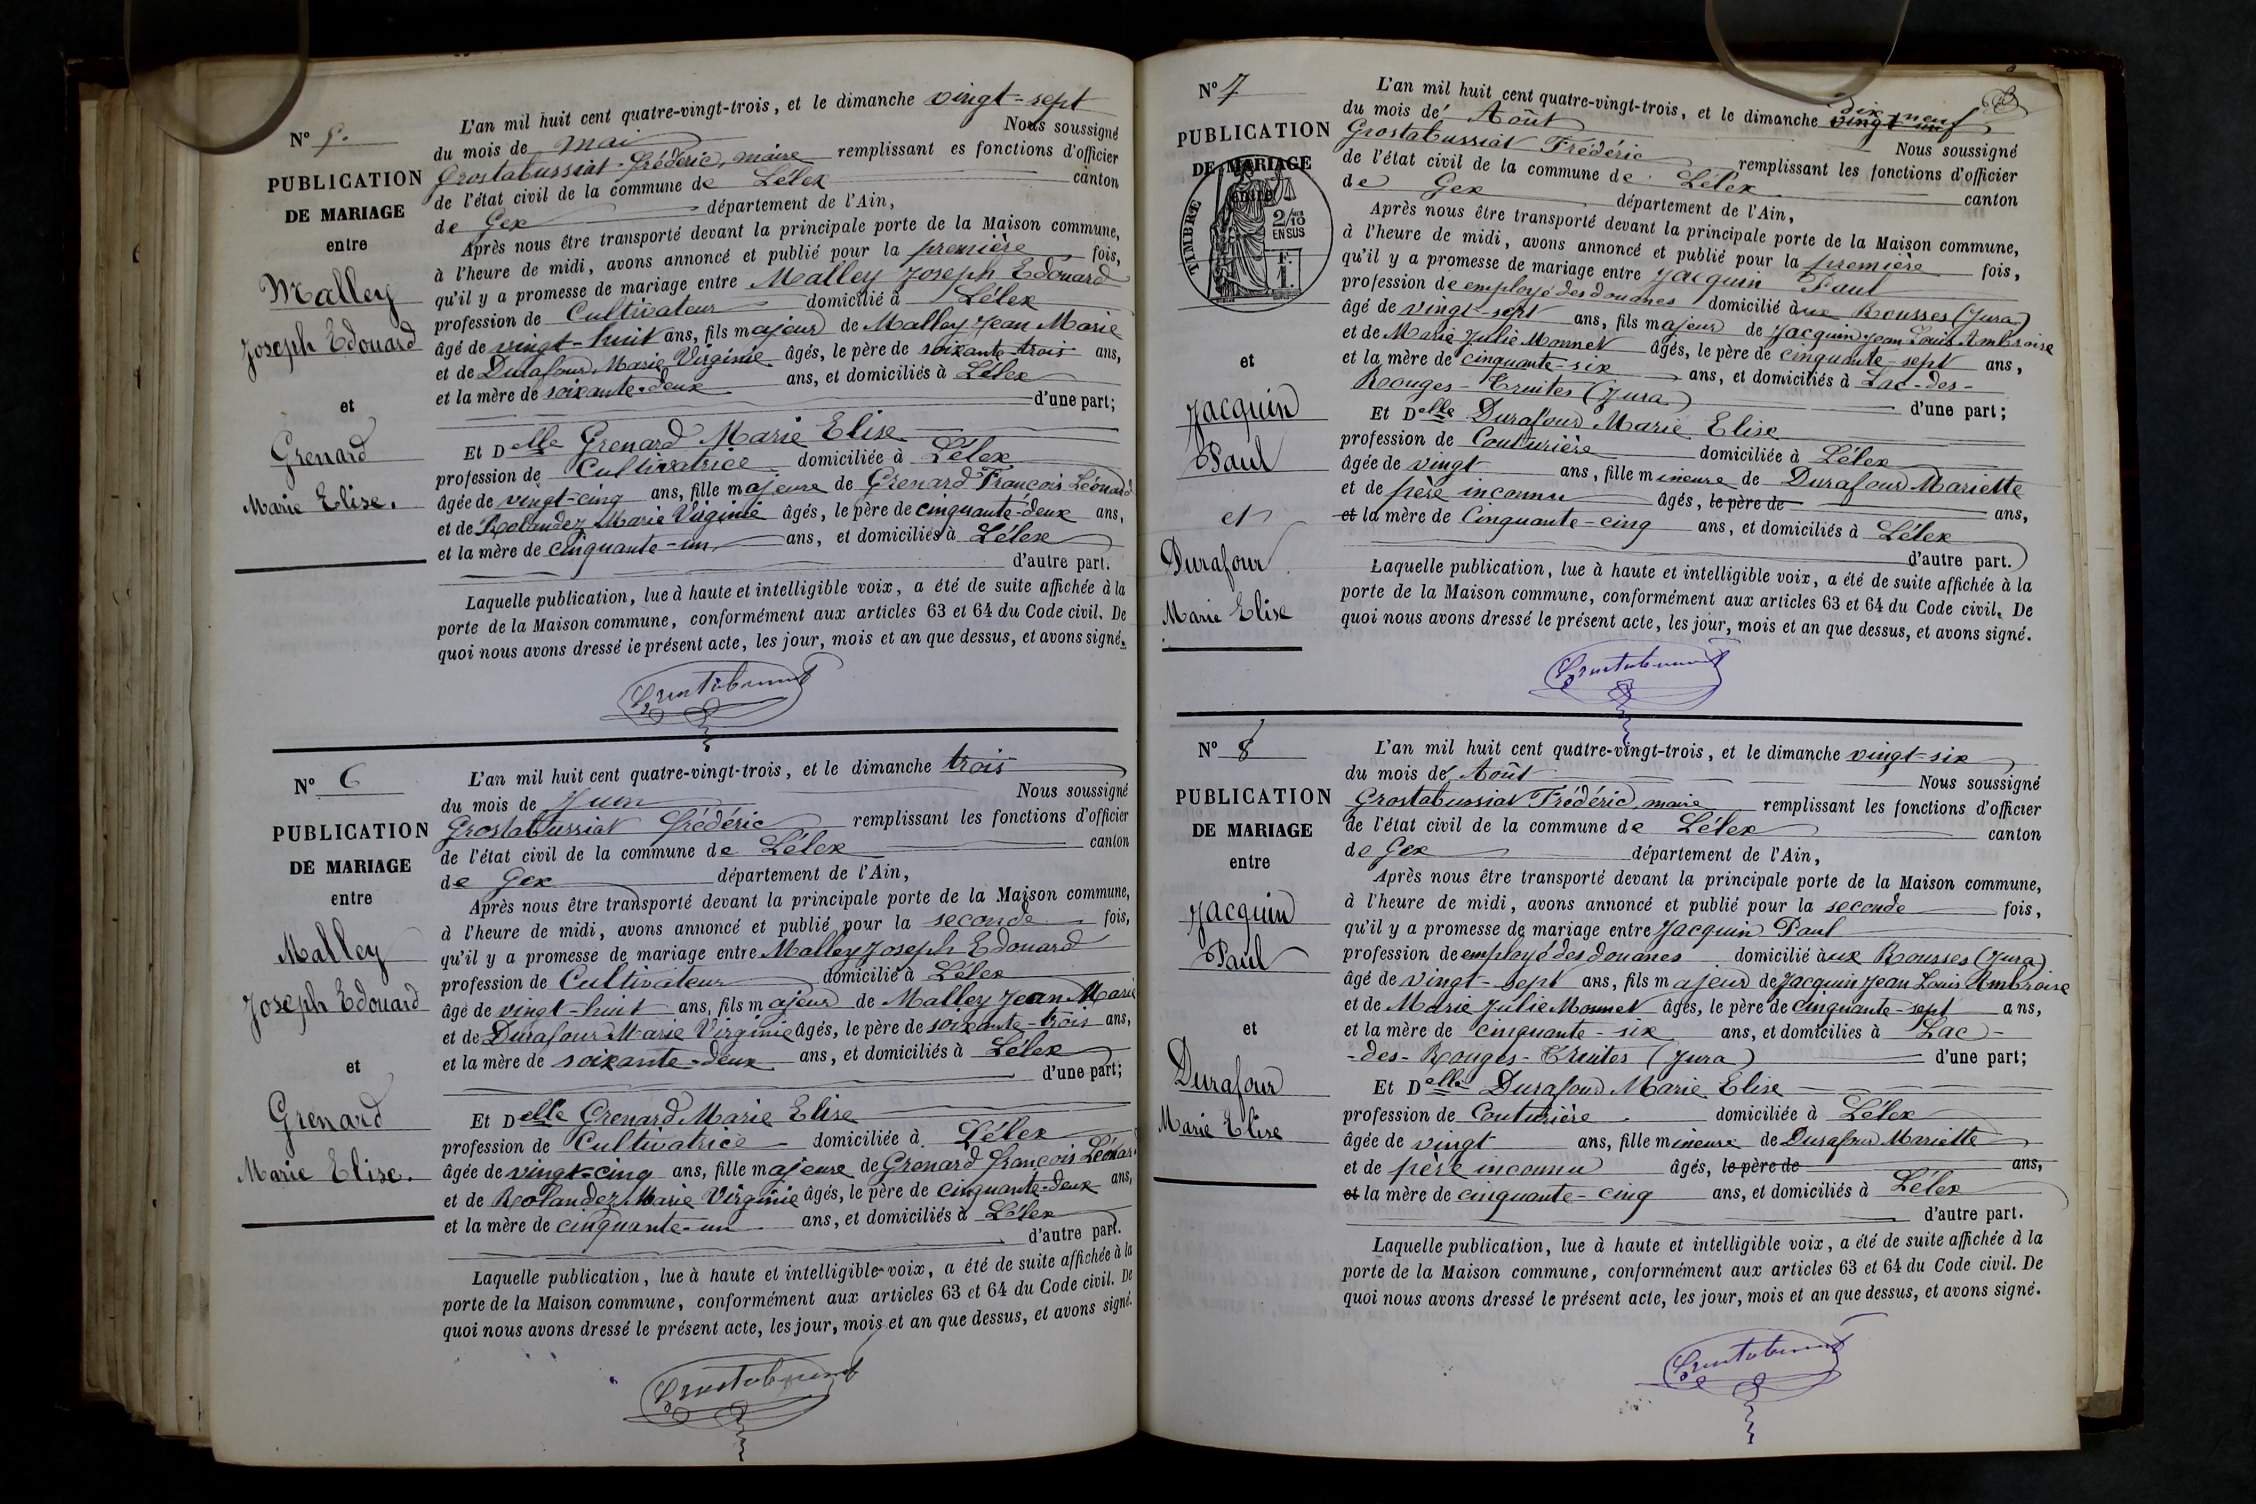 N° 5.
PUBLICATION
DE MARIAGE
entre
Malley
Joseph Edouard
et
Grenard
Marie Elise.
L'an mil huit cent quatre-vingt-trois, et le dimanche vingt-sept
du mois de mai Nous soussigné
Grostabussiat Frédéric, maire remplissant es fonctions d'officier
de l'état civil de la commune de Lélex canton
de Gex département de l'Ain,
Après nous être transporté devant la principale porte de la Maison commune,
à l'heure de midi, avons annoncé et publié pour la première fois,
qu'il y a promesse de mariage entre Malley Joseph Edouard
profession de Cultivateur domicilié à Lélex
âgé de vingt-huit ans, fils majeur de Malley Jean Marie
et de Durafour Marie Virginie âgés, le père de soixante trois ans,
et la mère de soixante-deux ans, et domiciliés à Lélex
d'une part;
Et Delle Grenard Marie Elise
profession de Cultivatrice domiciliée à Lélex
âgée de vingt-cinq ans, fille majeure de Grenard François Léonard
et de Rolandez Marie Virginie âgés, le père de cinquante-deux ans,
et la mère de cinquante-un ans, et domiciliés à Lélex
d'autre part.
Laquelle publication, lue à haute et intelligible voix, a été de suite affichée à la
porte de la Maison commune, conformément aux articles 63 et 64 du Code civil. De
quoi nous avons dressé le présent acte, les jour, mois et an que dessus, et avons signé.
Grostabussiat
N° 6
PUBLICATION
DE MARIAGE
entre
Malley
Joseph Edouard
et
Grenard
Marie Elise.
L'an mil huit cent quatre-vingt-trois, et le dimanche trois
du mois de Juin Nous soussigné
Grostabussiat Frédéric remplissant les fonctions d'officier
de l'état civil de la commune de Lélex canton
de Gex département de l'Ain,
Après nous être transporté devant la principale porte de la Maison commune,
à l'heure de midi, avons annoncé et publié pour la seconde fois,
qu'il y a promesse de mariage entre Malley Joseph Edouard
profession de Cultivateur domicilié à Lélex
âgé de vingt-huit ans, fils majeur de Malley Jean Marie
et de Durafour Marie Virginie âgés, le père de soixante-trois ans,
et la mère de soixante-deux ans, et domiciliés à Lélex
d'une part;
Et Delle Grenard Marie Elise
profession de Cultivatrice domiciliée à Lélex
âgée de vingt-cinq ans, fille majeure de Grenard François Léonard
et de Rolandez Marie Virginie âgés, le père de cinquante-deux ans,
et la mère de cinquante-un ans, et domiciliés à Lélex
d'autre part.
Laquelle publication, lue à haute et intelligible voix, a été de suite affichée à la
porte de la Maison commune, conformément aux articles 63 et 64 du Code civil. De
quoi nous avons dressé le présent acte, les jour, mois et an que dessus, et avons signé.
Grostabussiat
N° 7
PUBLICATION
DE MARIAGE
entre
TIMBRE
2/10
EN SUS
F.
1.
et
Jacquin
Paul
et
Durafour
Marie Elise
L'an mil huit cent quatre-vingt-trois, et le dimanche vingt six dix neuf
du mois de Août Nous soussigné
Grostabussiat Frédéric remplissant les fonctions d'officier
de l'état civil de la commune de Lélex canton
de Gex département de l'Ain,
Après nous être transporté devant la principale porte de la Maison commune,
à l'heure de midi, avons annoncé et publié pour la première fois,
qu'il y a promesse de mariage entre Jacquin Paul
profession de employé des douanes domicilié aux Rousses (Jura)
âgé de vingt-sept ans, fils majeur de Jacquin Jean Louis Ambroise
et de Marie Julie Monnet âgés, le père de cinquante-sept ans,
et la mère de cinquante-six ans, et domiciliés à Lac-des-
Rouges-Truites (Jura) d'une part;
Et Delle Durafour Marie Elise
profession de Couturière domiciliée à Lélex
âgée de vingt ans, fille mineure de Durafour Mariette
et de père inconnu âgés, le père de ans,
et la mère de Cinquante-cinq ans, et domiciliés à Lélex
d'autre part.
Laquelle publication, lue à haute et intelligible voix, a été de suite affichée à la
porte de la Maison commune, conformément aux articles 63 et 64 du Code civil. De
quoi nous avons dressé le présent acte, les jour, mois et an que dessus, et avons signé.
Grostabussiat
N° 8
PUBLICATION
DE MARIAGE
entre
Jacquin
Paul
et
Durafour
Marie Elise
L'an mil huit cent quatre-vingt-trois, et le dimanche vingt-six
du mois de Août Nous soussigné
Grostabussiat Frédéric, maire remplissant les fonctions d'officier
de l'état civil de la commune de Lélex canton
de Gex département de l'Ain,
Après nous être transporté devant la principale porte de la Maison commune,
à l'heure de midi, avons annoncé et publié pour la seconde fois,
qu'il y a promesse de mariage entre Jacquin Paul
profession de employé des douanes domicilié aux Rousses (Jura)
âgé de vingt-sept ans, fils majeur de Jacquin Jean Louis Ambroise
et de Marie Julie Monnet âgés, le père de cinquante-sept ans,
et la mère de cinquante-six ans, et domiciliés à Lac-
-des-Rouges-Truites (Jura) d'une part;
Et Delle Durafour Marie Elise
profession de Couturière domiciliée à Lélex
âgée de vingt ans, fille mineure de Durafour Mariette
et de père inconnu âgés, le père de ans,
et la mère de cinquante-cinq ans, et domiciliés à Lélex
d'autre part.
Laquelle publication, lue à haute et intelligible voix, a été de suite affichée à la
porte de la Maison commune, conformément aux articles 63 et 64 du Code civil. De
quoi nous avons dressé le présent acte, les jour, mois et an que dessus, et avons signé.
Grostabussiat